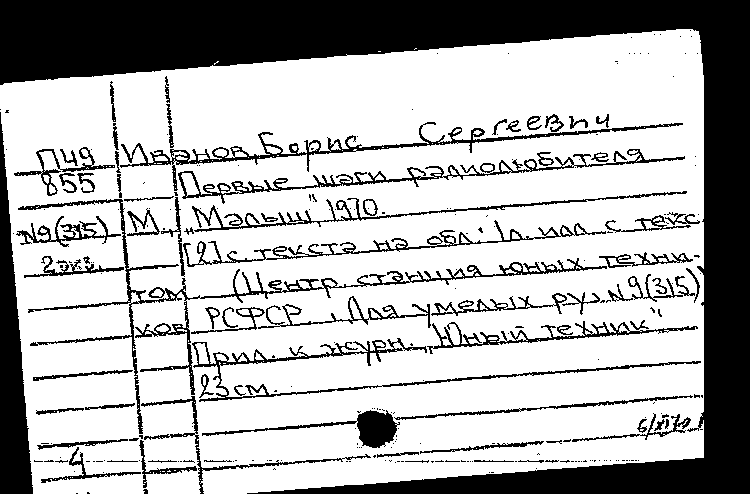 П49 Иванов, Борис Сергеевич
855 Первые шаги радиолюбителя
№9(315) М., „Малыш", 1970.
2 экз. [2] с. текста на обл.; 1 л. илл. с текс-
том (Центр. станция юных техни-
ков РСФСР. Для умелых рук №9(315))
Прил. к журн. „Юный техник"
23 см.
6/XI70
4